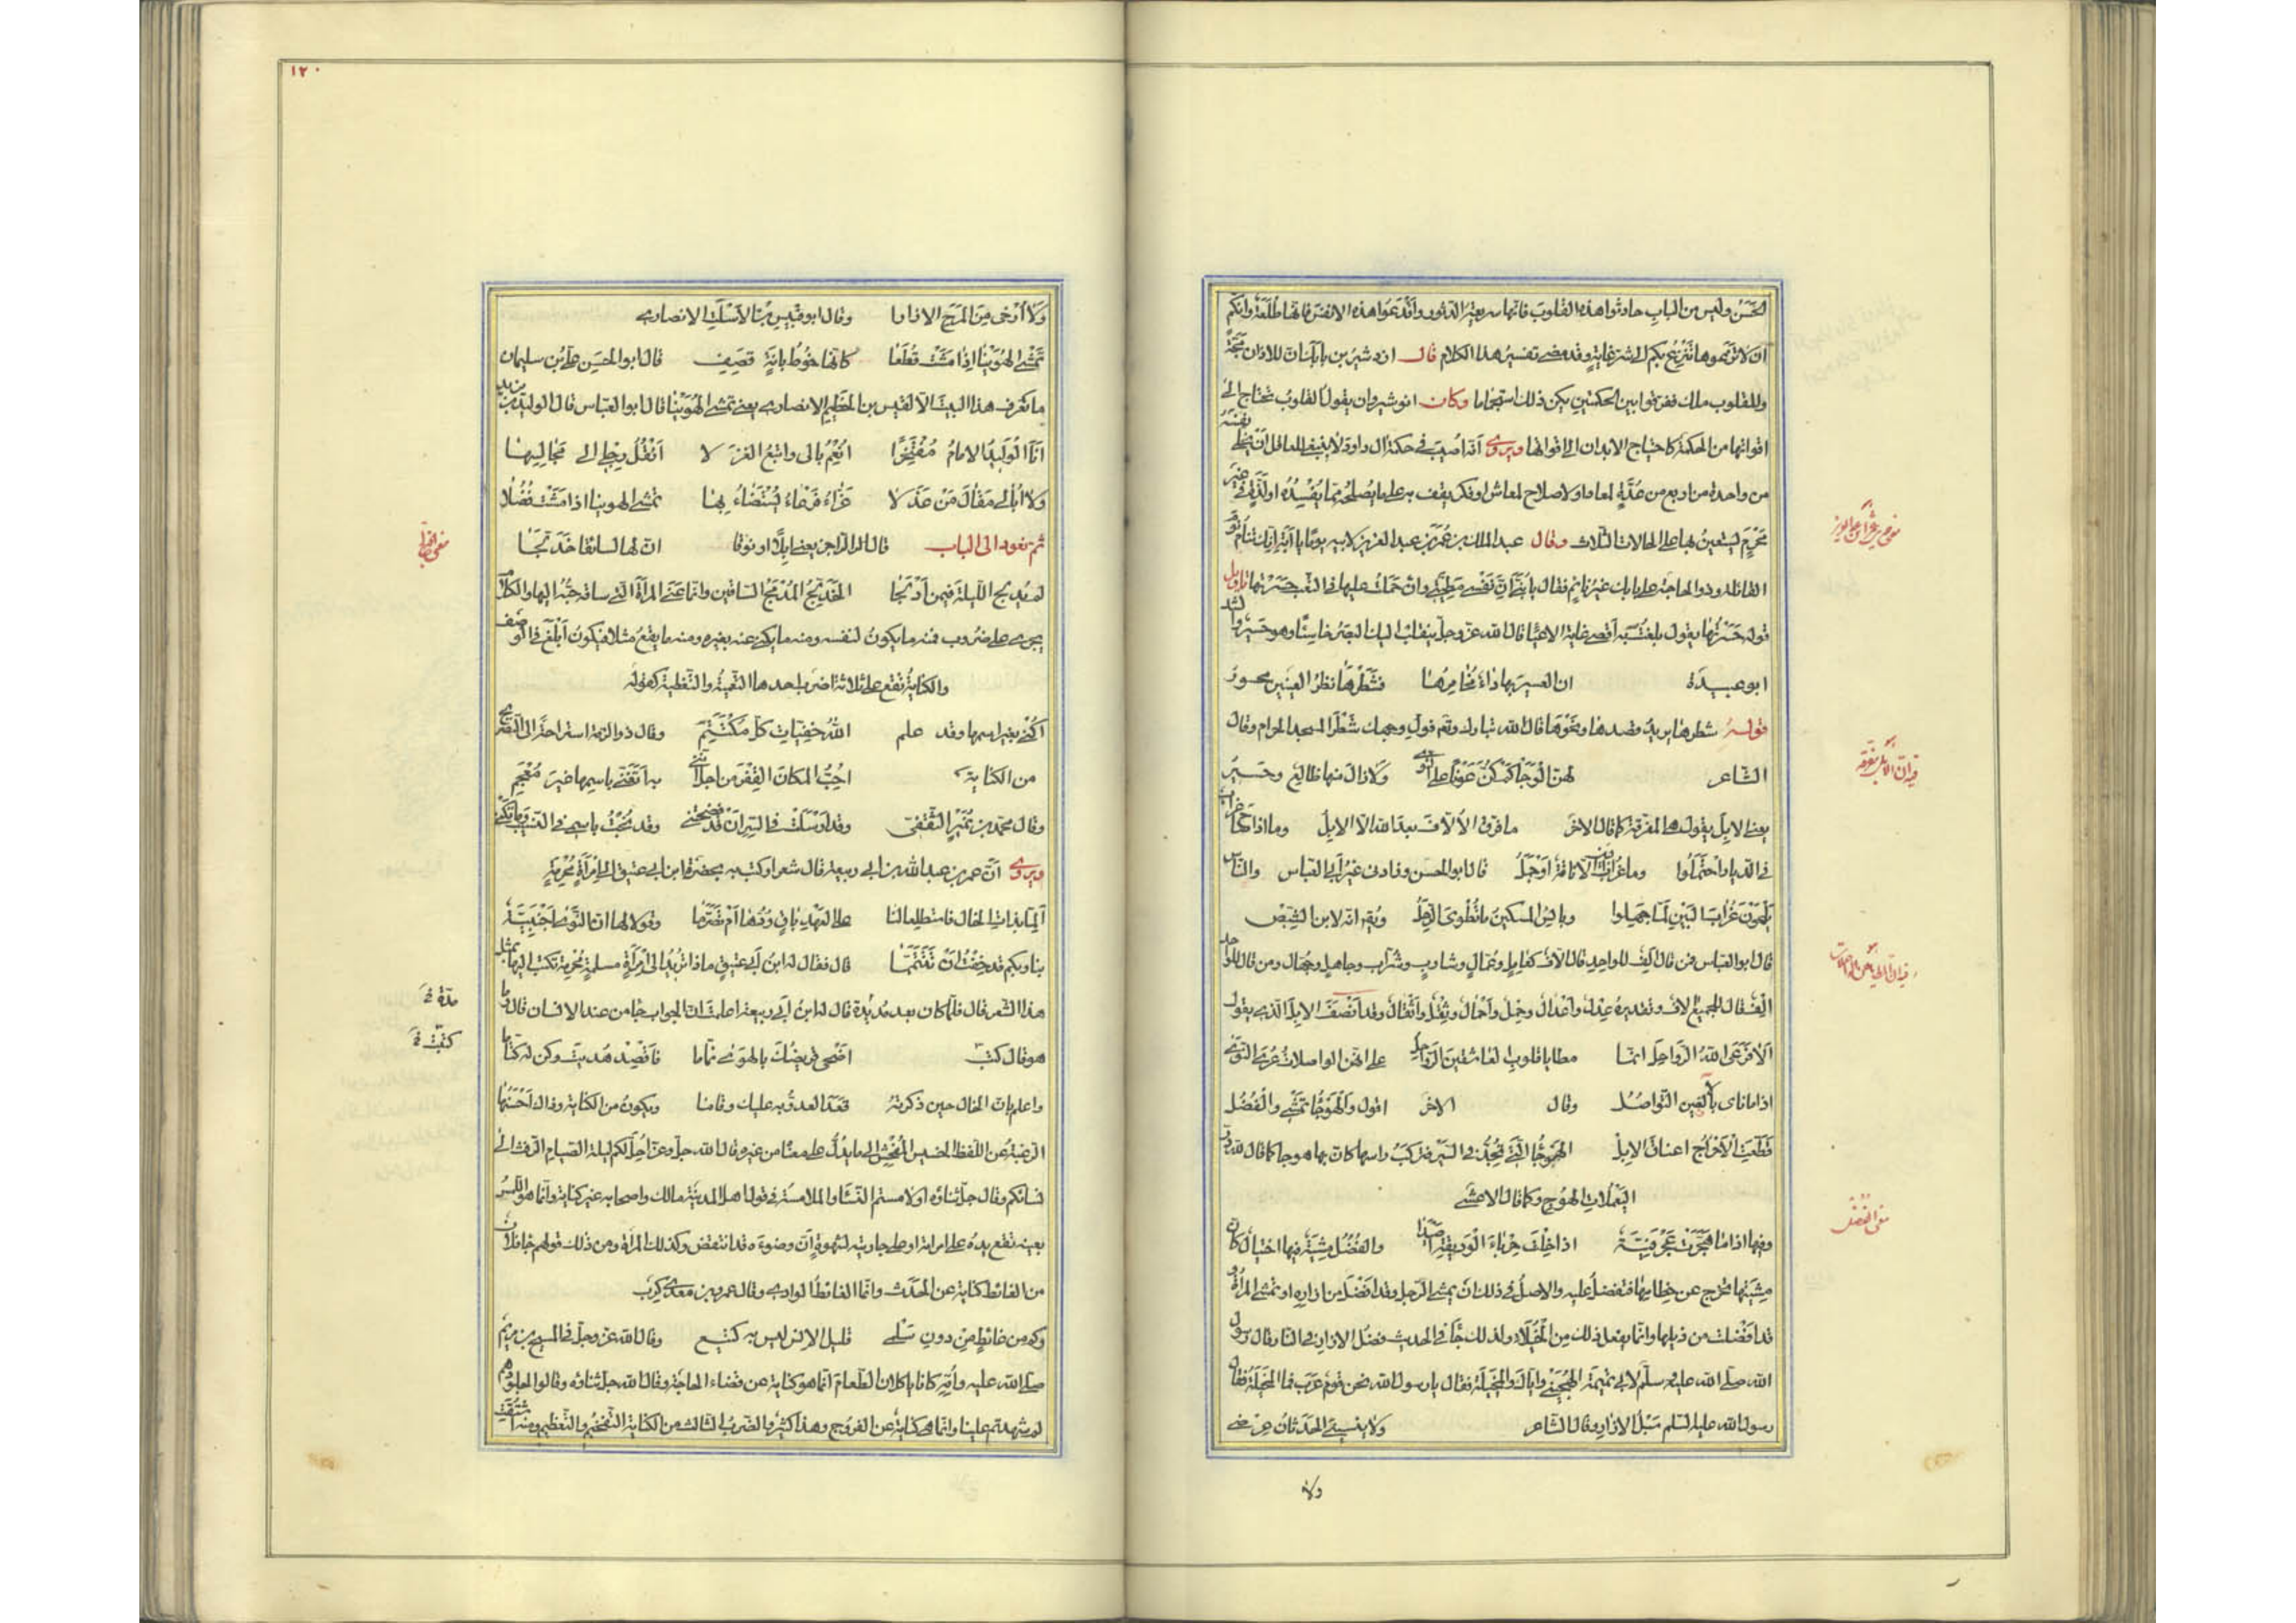 الحسن وليس من الباب حادثوا هذه القلوب فانها سريعة الدثور واقدعوا هذه الانفس فانها طلعة وانكم
ان لا تزعوها تنزع بكم الى شر غاية وقد مضى تفسير هذا الكلام قال اردشير بن بابك ان للاذان مجة
وللقلوب ملك ففرقوا بين الحكمتين يكن ذلك استجماما وكان انوشيروان يقول القلوب تحتاج الى
اقواتها من الحكمة كاحتياج الابدان الى اقواتها ويروى انه اصيب في حكمة ال داود لا ينبغي للعاقل ان يخلي نفسه
من واحدة من اربع من عدة لمعاد او لاصلاح لمعاش او فكر يقف به على ما يصلحه مما يفسده او لذة في غير
محرم ليستعين بها على الحالات الثلاث وقال عبد الملك بن عمر بن عبد العزيز لابيه يوما يا ابة انك تنام نوم
القائلة وذو الحاجة على بابك غير نائم فقال يا بني ان نفسي مطيتي وان حملت عليها في التعب حسرتها تاويل
قوله حسرتها يقول بلغت به اقصى غاية الاعيا قال الله عز وجل ينقلب اليك البصر خاسئا وهو حسير وانشد
ابو عبيدة ان العسير بها داء مخامرها فشطرها نظر العينين محسور
قوله شطرها يريد قصدها ونحوها قال الله تبارك وتع فول وجهك شطر المسجد الحرام وقال
الشاعر لهن الوجا لم كن عونا على النوى ولا زال منها ظالع وحسير
يعني الابل يقول هي المفرقة كما قال الاخر ما فرق الالاف بعد الله الا الابل وما اذا صاح غراب
في الديار احتملوا وما غراب البين الا ناقة او جمل قال ابو الحسن وزادني غير ابي العباس والناس
يلحون غراب البين لما جهلوا وبالبس المسكين ما تطوى الرحل ويق انه لابن الشيص
قال ابو العباس فمن قال الف للواحد قال الاف كعامل وعمال وشارب وشراب وجاهل وجهال ومن قال للواحد
الف قال للجميع الاف وتقديره عدل واعدال وحمل واحمال وثقل واثقال وقد انصف الابل الذي يقول
الا فرعى الله الرواحل انما مطايا قلوب العاشقين الرواحل على انهن الواصلات عرى النوى
اذا ما ناى بالالفين التواصل وقال الاخر اقول والهوجا تمشي والفضل
قطعت الاحراج اعناق الابل الهوجا التي تجد في السير فتركب راسها كان بها هوجا كما قال
اليعملات الهوج وكما قال الاعشى
وفيها اذا ما هجرت عجرفية اذا خلت حرباء الوديقة اصيدا والفضل مشية فيها اختيال كان
مشيتها تخرج عن خطامها فتفضل عليه والاصل في ذلك ان يمشي الرجل وقد افضل من ازاره او تمشي المراة و
قد افضلت من ذيلها وانما يفعل ذلك من الخيلاء ولذلك جا في الحديث فضل الازار في النار وقال رسول
الله صلى الله عليه وسلم لابي تميمة الهجيمي واياك والمخيلة فقال يا رسول الله نحن قوم عرب فما المخيلة فقال
رسول الله عليه السلم سبل الازار وقال الشاعر ولا ينسيني الحدثان عرضي
ولا
فيه ان الابل مفرقة
معنى الفضل
١٢٠
ولا ارخى من المرح الازارا وقال ابو قيس بن الاسلت الانصاري
تمشي الهوينا اذا مشت قطعا كانها خوط بانة قصف قال ابو الحسن علي بن سليمان
ما نعرف هذا البيت الا لقيس بن الخطيم الانصاري يعني تمشي الهوينا قال ابو العباس قال الوليد بن يزيد
انا الوليد الامام مفتخرا انعم بالى واتبع الغزلا انقل رجلي الى مجالسها
ولا ابالى مقال من عذلا غراء فرعاء يستضاء بها تمشي الهوينا اذا مشت فضلا
ثم نعود الى الباب قال الراجز يعني ابلا او نوقا ان لها لسائقا خدلجا
لم يدلج الليلة فيمن ادلجا الخدلج المدمج الساقين وانما عنى المراة التي ساقه حبه اليها والكلام
يجري على ضروب فمنه ما يكون لنفسه ومنه ما يكنى عنه بغيره ومنه ما يقع مثلا فيكون ابلغ في الوصف
والكناية تقع على ثلاثة اضرب احدها التعمية والتغطية كقوله
اكني بغير اسمها وقد علم الله خفيات كل مكتتم وقال ذو الرمة استراحة الى التصريح
من الكناية احب المكان القفر من اجل انني به اتغنى باسمها غير معجم
وقال محمد بن نمير الثقفي وقد ارسلت في السر ان قد فضحتني وقد بحت باسمي في النسيب وما تكني
ويروى ان عمر بن عبد الله بن ابي ربيعة قال شعرا وكتب به بحضرة ابن ابي عتيق الى امراة محرمة
الما بذات الخال فاستطلعا لنا على العهد باق ودها ام تصرما وقولا لها ان النوى اجنبية
بنا وبكم قد خفت ان تتيمما قال فقال له ابن ابي عتيق ماذا تريد الى امراة مسلمة محرمة تكتب اليها بمثل
هذا الشعر قال فلما كان بعد مديدة قال له ابن ابي ربيعة اعلمت ان الجواب جا من عند الانسان قال ما
هو قال كتبت اضحى قريضك بالهوى نماما فاقصد هديت وكن له كتاما
واعلم بان الخال حين ذكرته قعد العدو به عليك وقاما ويكون من الكناية وذاك احسنها
الرغبة عن اللفظ الخسيس المفحش الى ما يدل على معناه من غيره قال الله جل وعز احل لكم ليلة الصيام الرفث الى
نسائكم وقال جل ثناؤه او لامستم النسا والملامسة في قول اهل المدينة مالك واصحابه غير كناية وانما هو اللمس
بعينه تقع يده على امراته او على جاريته لشهوة ان وضوءه قد انتقض وكذلك المراة ومن ذلك قولهم جا فلان
من الغائط كناية عن الحدث وانما الغائط الوادي وقال عمرو بن معدي كرب
وكم من غائط من دون سلمى قليل الانس ليس به كتيع وقال الله عز وجل في المسيح بن مريم
صلى الله عليه وامه كانا ياكلان الطعام انما هو كناية عن قضاء الحاجة وقال الله جل ثناؤه وقالوا لجلودهم
لم شهدتم علينا وانما هي كناية عن الفروج وهذا كثير والضرب الثالث من الكناية التفخيم والتعظيم ومنه اشتقت
مدة
كتبت